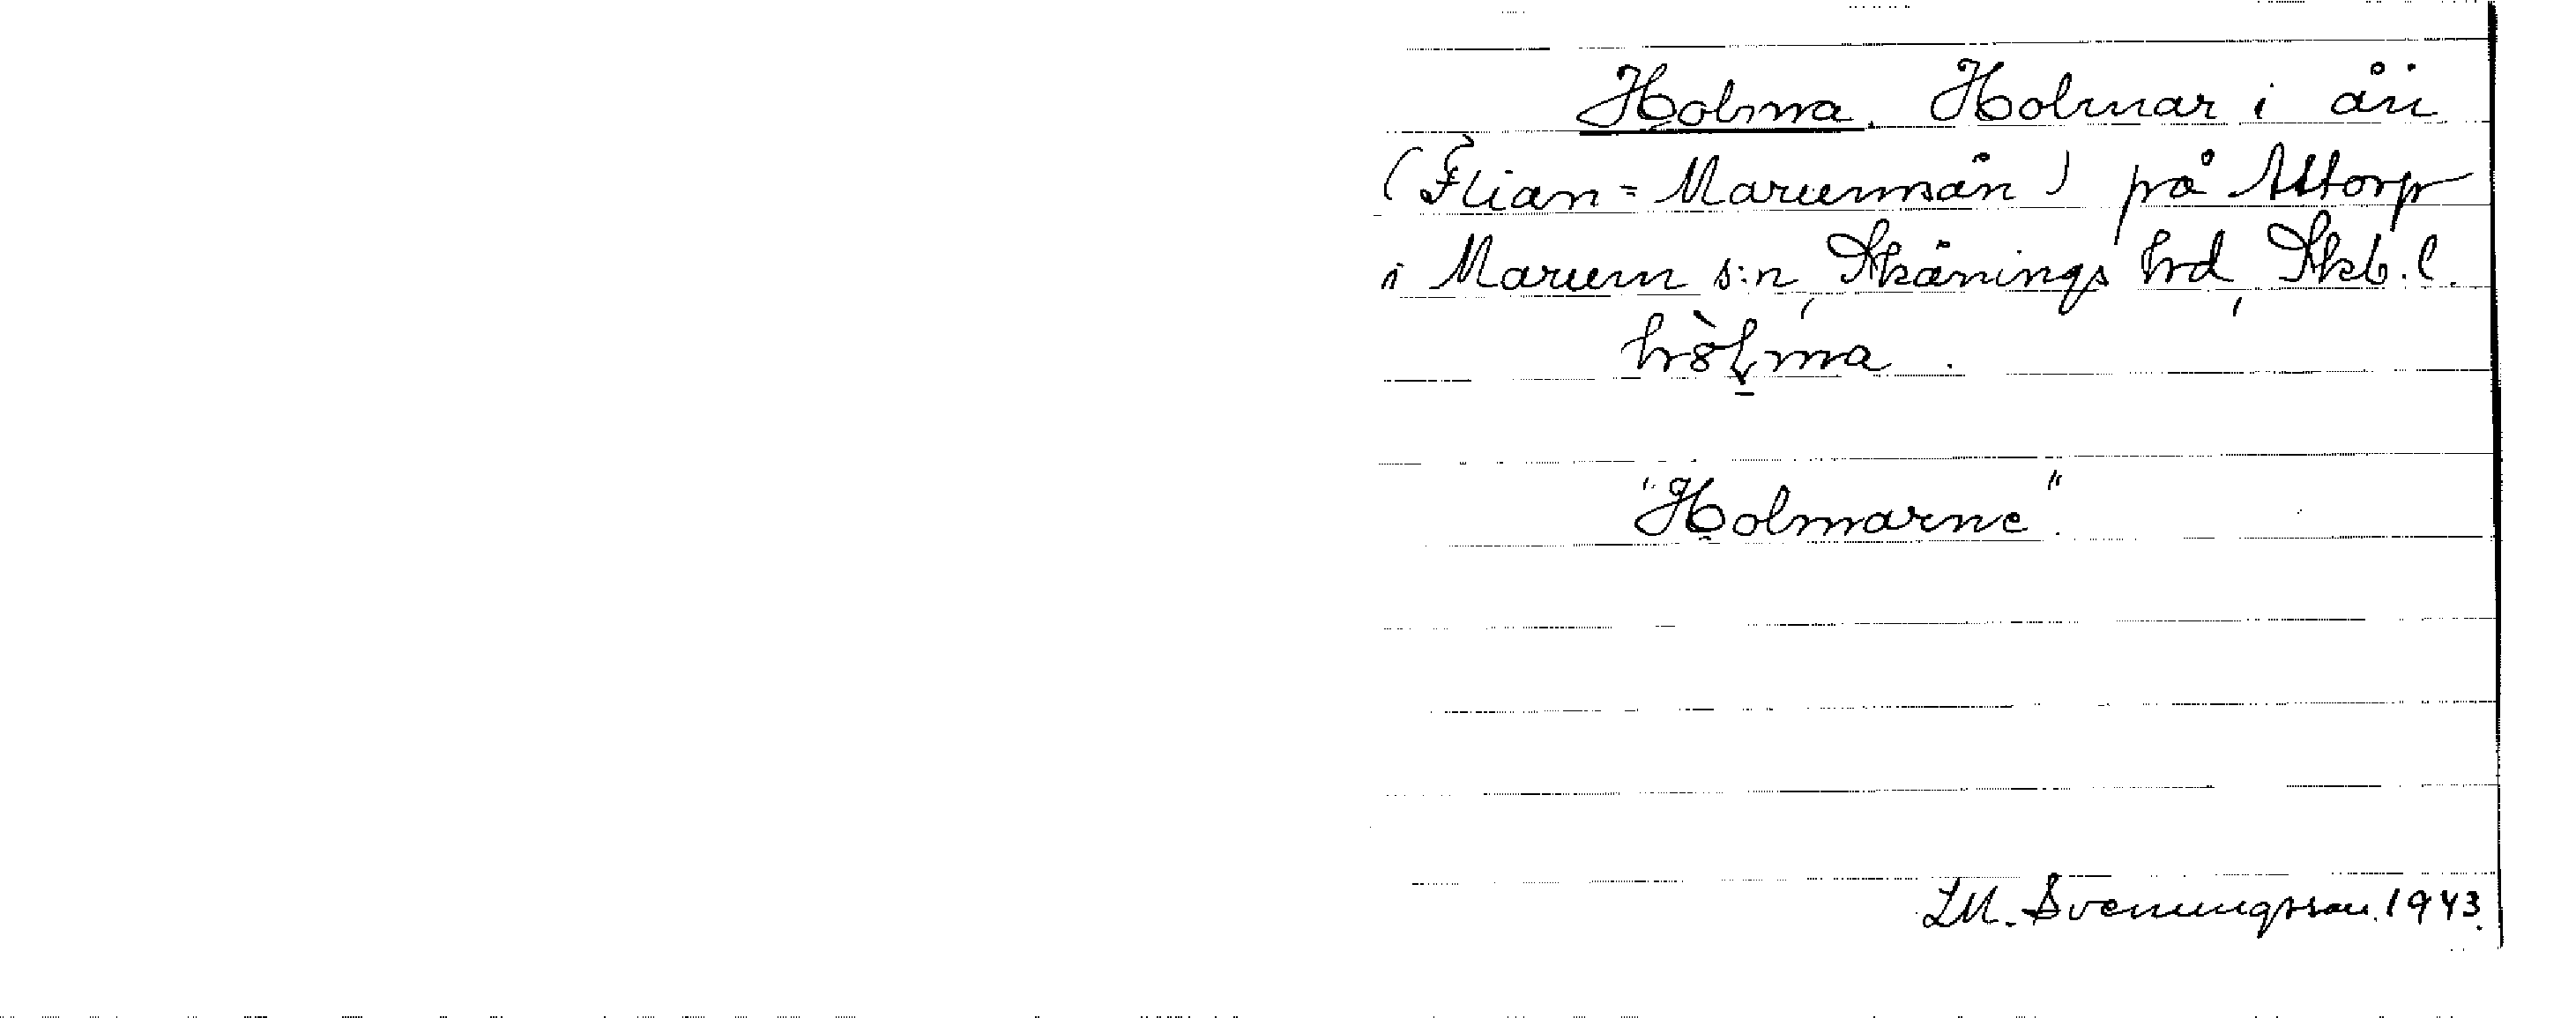 Holma. Holmar i ån
(Flian = Marumsån) på Attorp
i Marum s:n, Skånings hrd, Skb. l.
"Holmarne".
LM. Svenungsson. 1943.